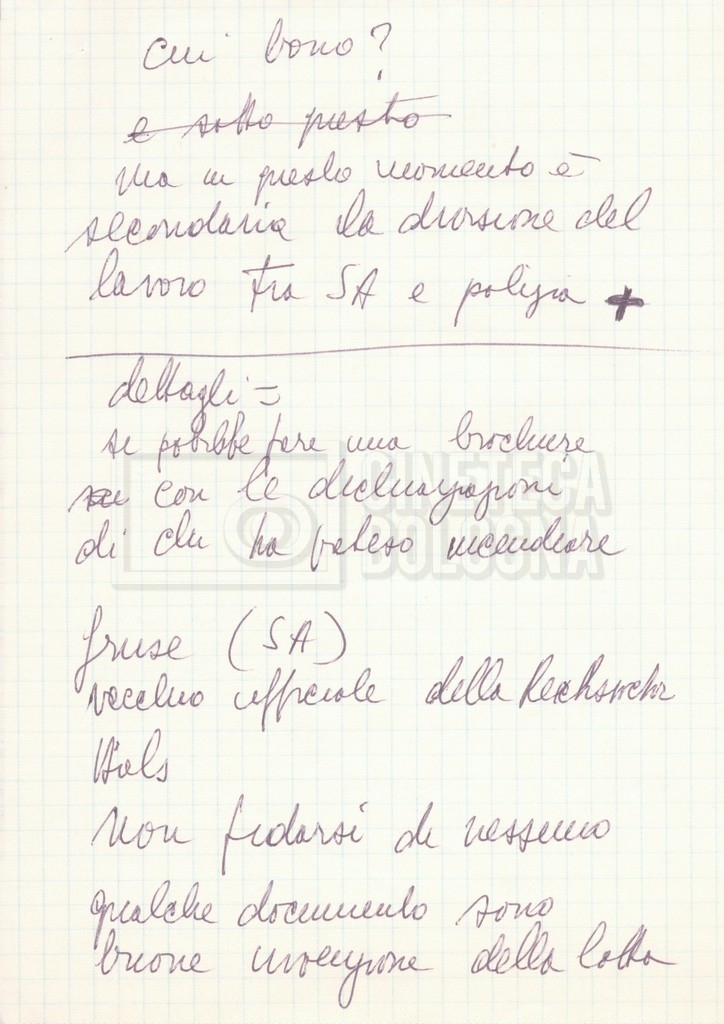 cui bono?
e sotto questo
ma in questo momento è
secondaria la divisione del
lavoro tra SA e polizia +
dettagli =
si potrebbe fare una brochure
con le dichiarazioni
di chi ha potuto incendiare
(SA)
vecchio ufficiale della Reichswehr
Non fidarsi di nessuno
qualche documento sono
buone della lotta
CINETECA
BOLOGNA